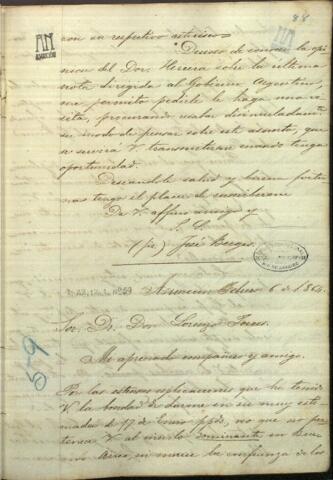 88
AN
ASUNCIÓN
con su respectivo
Deseoso de conocer la opi-
nion del Dor. Herrera sobre la ultima
nota dirigida al Gobierno Argentino,
me permito pedirle le haga una vi-
sita, procurando sacar disimuladamte.
su modo de pensar sobre este asunto, que
se servirá V. transmitirme cuando tenga
oportunidad.
Deseandole salud y buena fortu-
na tengo el placer de suscribirme
De V. affmo. amigo y
S. S.
José Berges
Asuncion Febrero 6 de 1864.
Sor. Dr. Don Lorenzo Torres.
Mi apreciado compañero y amigo.
Por las estensas esplicaciones que ha tenido
V. la bondad de darme en su muy esti-
mada de 17 de Enero ppdo., veo que no per-
tenece V. al circulo dominante en Bue-
nos Aires, ni merece la confianza de los